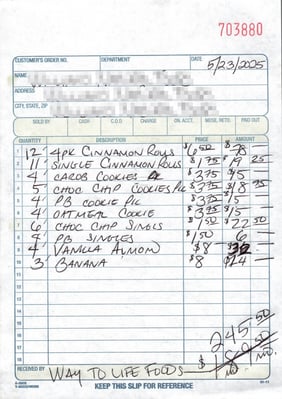 703880
CUSTOMER'S ORDER NO. DEPARTMENT DATE 5/23/2025
NAME
ADDRESS
CITY, STATE, ZIP
SOLD BY CASH C.O.D. CHARGE ON. ACCT. MDSE. RETD. PAID OUT
QUANTITY DESCRIPTION PRICE AMOUNT
12 4PK CINNAMON ROLLS $6.50 $78
11 SINGLE CINNAMON ROLLS $1.75 19 25
4 CAROB COOKIES PK $3.75 $15
5 CHOC CHIP COOKIES PK $3.75 $18 75
4 PB COOKIE PK $3.75 $15
4 OATMEAL COOKIE $3.75 $15
CHOC CHIP SINGLS $1.50 $22 50
PB SINGLES $1.50 6
4 VANILLA ALMOND $8
3 BANANA $8
245.50
RECEIVED BY WAY TO LIFE FOODS
KEEP THIS SLIP FOR REFERENCE